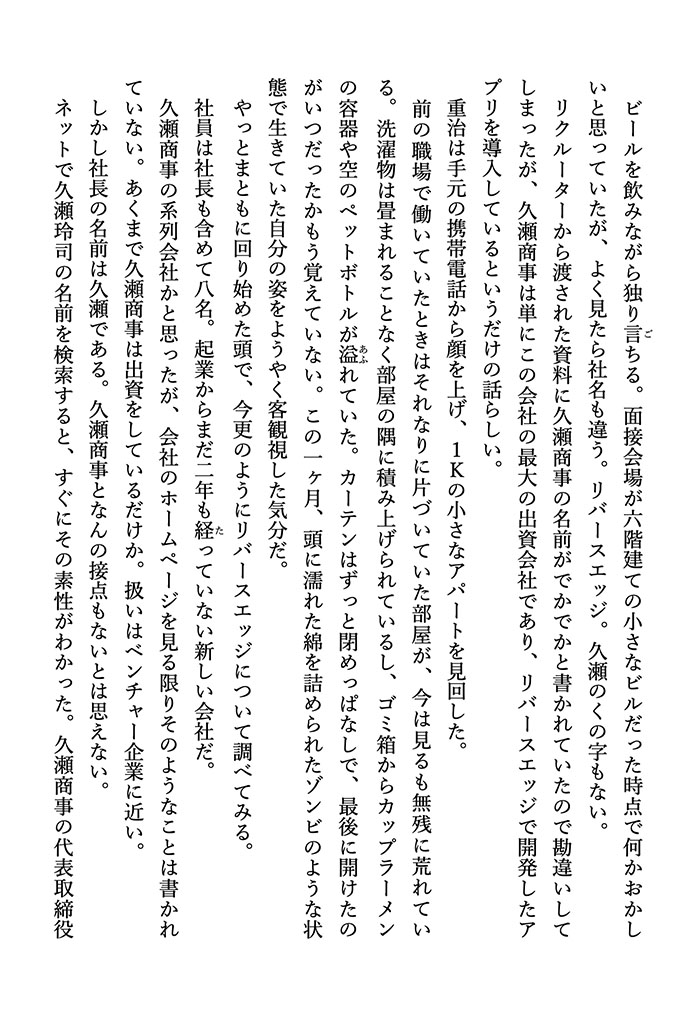 ビールを飲みながら独り言ちる。面接会場が六階建ての小さなビルだった時点で何かおかし
いと思っていたが、よく見たら社名も違う。リバースエッジ。久瀬のくの字もない。
リクルーターから渡された資料に久瀬商事の名前がでかでかと書かれていたので勘違いして
しまったが、久瀬商事は単にこの会社の最大の出資会社であり、リバースエッジで開発したア
プリを導入しているというだけの話らしい。
重治は手元の携帯電話から顔を上げ、1Kの小さなアパートを見回した。
前の職場で働いていたときはそれなりに片づいていた部屋が、今は見るも無残に荒れてい
る。洗濯物は畳まれることなく部屋の隅に積み上げられているし、ゴミ箱からカップラーメン
の容器や空のペットボトルが溢れていた。カーテンはずっと閉めっぱなしで、最後に開けたの
がいつだったかもう覚えていない。この一ヶ月、頭に濡れた綿を詰められたゾンビのような状
態で生きていた自分の姿をようやく客観視した気分だ。
やっとまともに回り始めた頭で、今更のようにリバースエッジについて調べてみる。
社員は社長も含めて八名。起業からまだ二年も経っていない新しい会社だ。
久瀬商事の系列会社かと思ったが、会社のホームページを見る限りそのようなことは書かれ
ていない。あくまで久瀬商事は出資をしているだけか。扱いはベンチャー企業に近い。
しかし社長の名前は久瀬である。久瀬商事となんの接点もないとは思えない。
ネットで久瀬玲司の名前を検索すると、すぐにその素性がわかった。久瀬商事の代表取締役